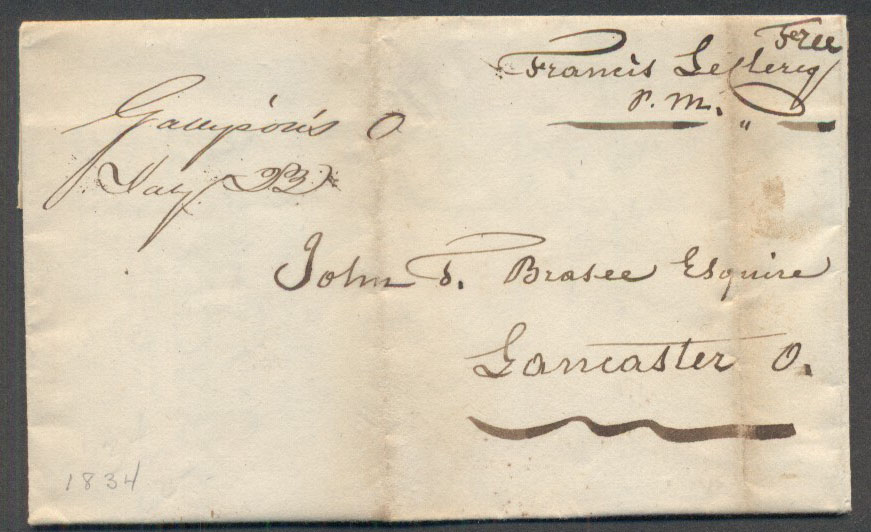 Free
Francis LeClercq
P. M. "
Gallipolis O
July 23
John T. Brasee Esquire
Lancaster O.
1834